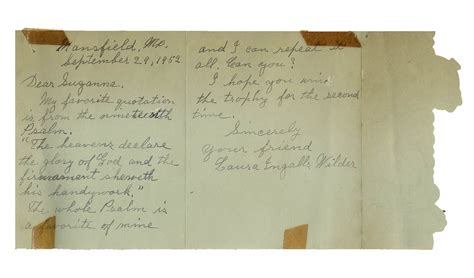 Mansfield, Mo.
September 29, 1952
Dear Suzanne.
My favorite quotation
is from the nineteenth
Psalm.
"The heavens declare
the glory of God and the
firmament sheweth
his handywork."
The whole Psalm is
a favorite of mine
and I can repeat it
all. Can you?
I hope you win
the trophy for the second
time.
Sincerely
Your friend
Laura Ingalls Wilder